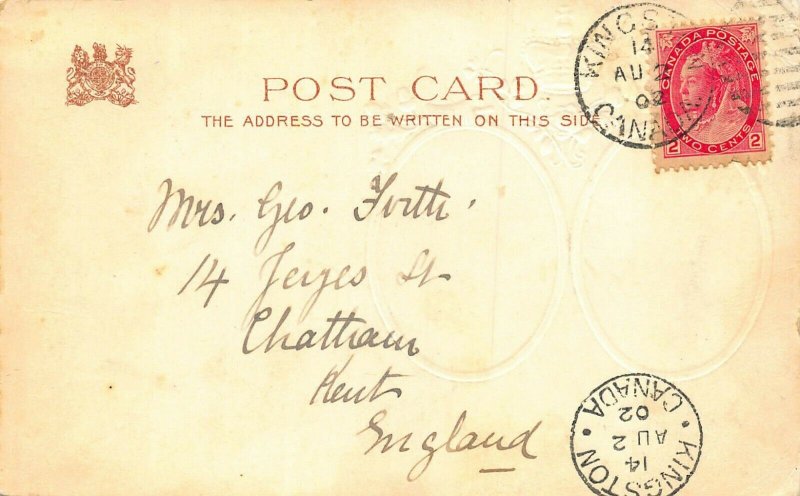 POST CARD.
THE ADDRESS TO BE WRITTEN ON THIS SIDE.
CANADA POSTAGE
2 TWO CENTS 2
KINGS
14
AU 2
02
Mrs. Geo.
14 St
Chatham
Kent
England
KINGSTON
14
AU 2
02
CANADA